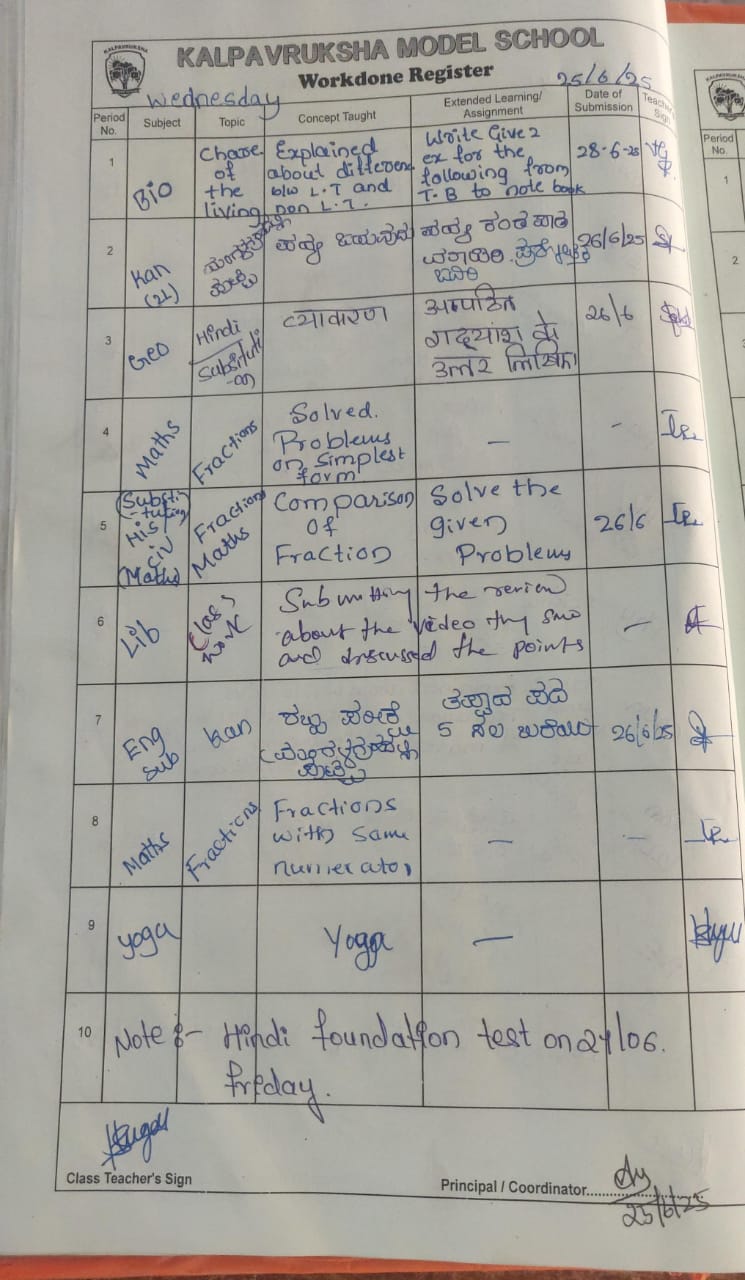 KALPAVRUKSHA
KALPAVRUKSHA MODEL SCHOOL
Workdone Register
Wednesday
25/6/25
Period No.
Subject
Topic
Concept Taught
Extended Learning/ Assignment
Date of Submission
Teacher's Sign
1
BIO
Charc
of
the
living
Explained
about different
b/w L.T and
non L.T.
Write Give 2
ex for the
following from
T.B to note book
28-6-25
2
Kan
(2L)
ಪದ್ಯ
ಪದ್ಯ ಕಂಠ ಪಾಠ
26/6/25
3
Geo
Hindi
Substituti
-on
व्याकरण
अपठित
गद्यांश के
उत्तर लिखिए।
26/6
4
Maths
Fractions
Solved.
Problems
on simplest
form
-
-
5
(Substi
-tution
His
Civ
(Maths)
Fractions
Maths
Comparison
of
Fraction
Solve the
given
Problems
26/6
6
Lib
Class
Work
Submitting the review
about the video they
and discussed the points
-
7
Eng
Sub
Kan
5 ಸಲ
26/6/25
8
Maths
Fractions
Fractions
with same
numerator
-
-
9
yoga
Yoga
-
10
Note :- Hindi foundation test on 27/06.
friday.
Class Teacher's Sign
Principal / Coordinator
25/6/25
Period No.
1
2